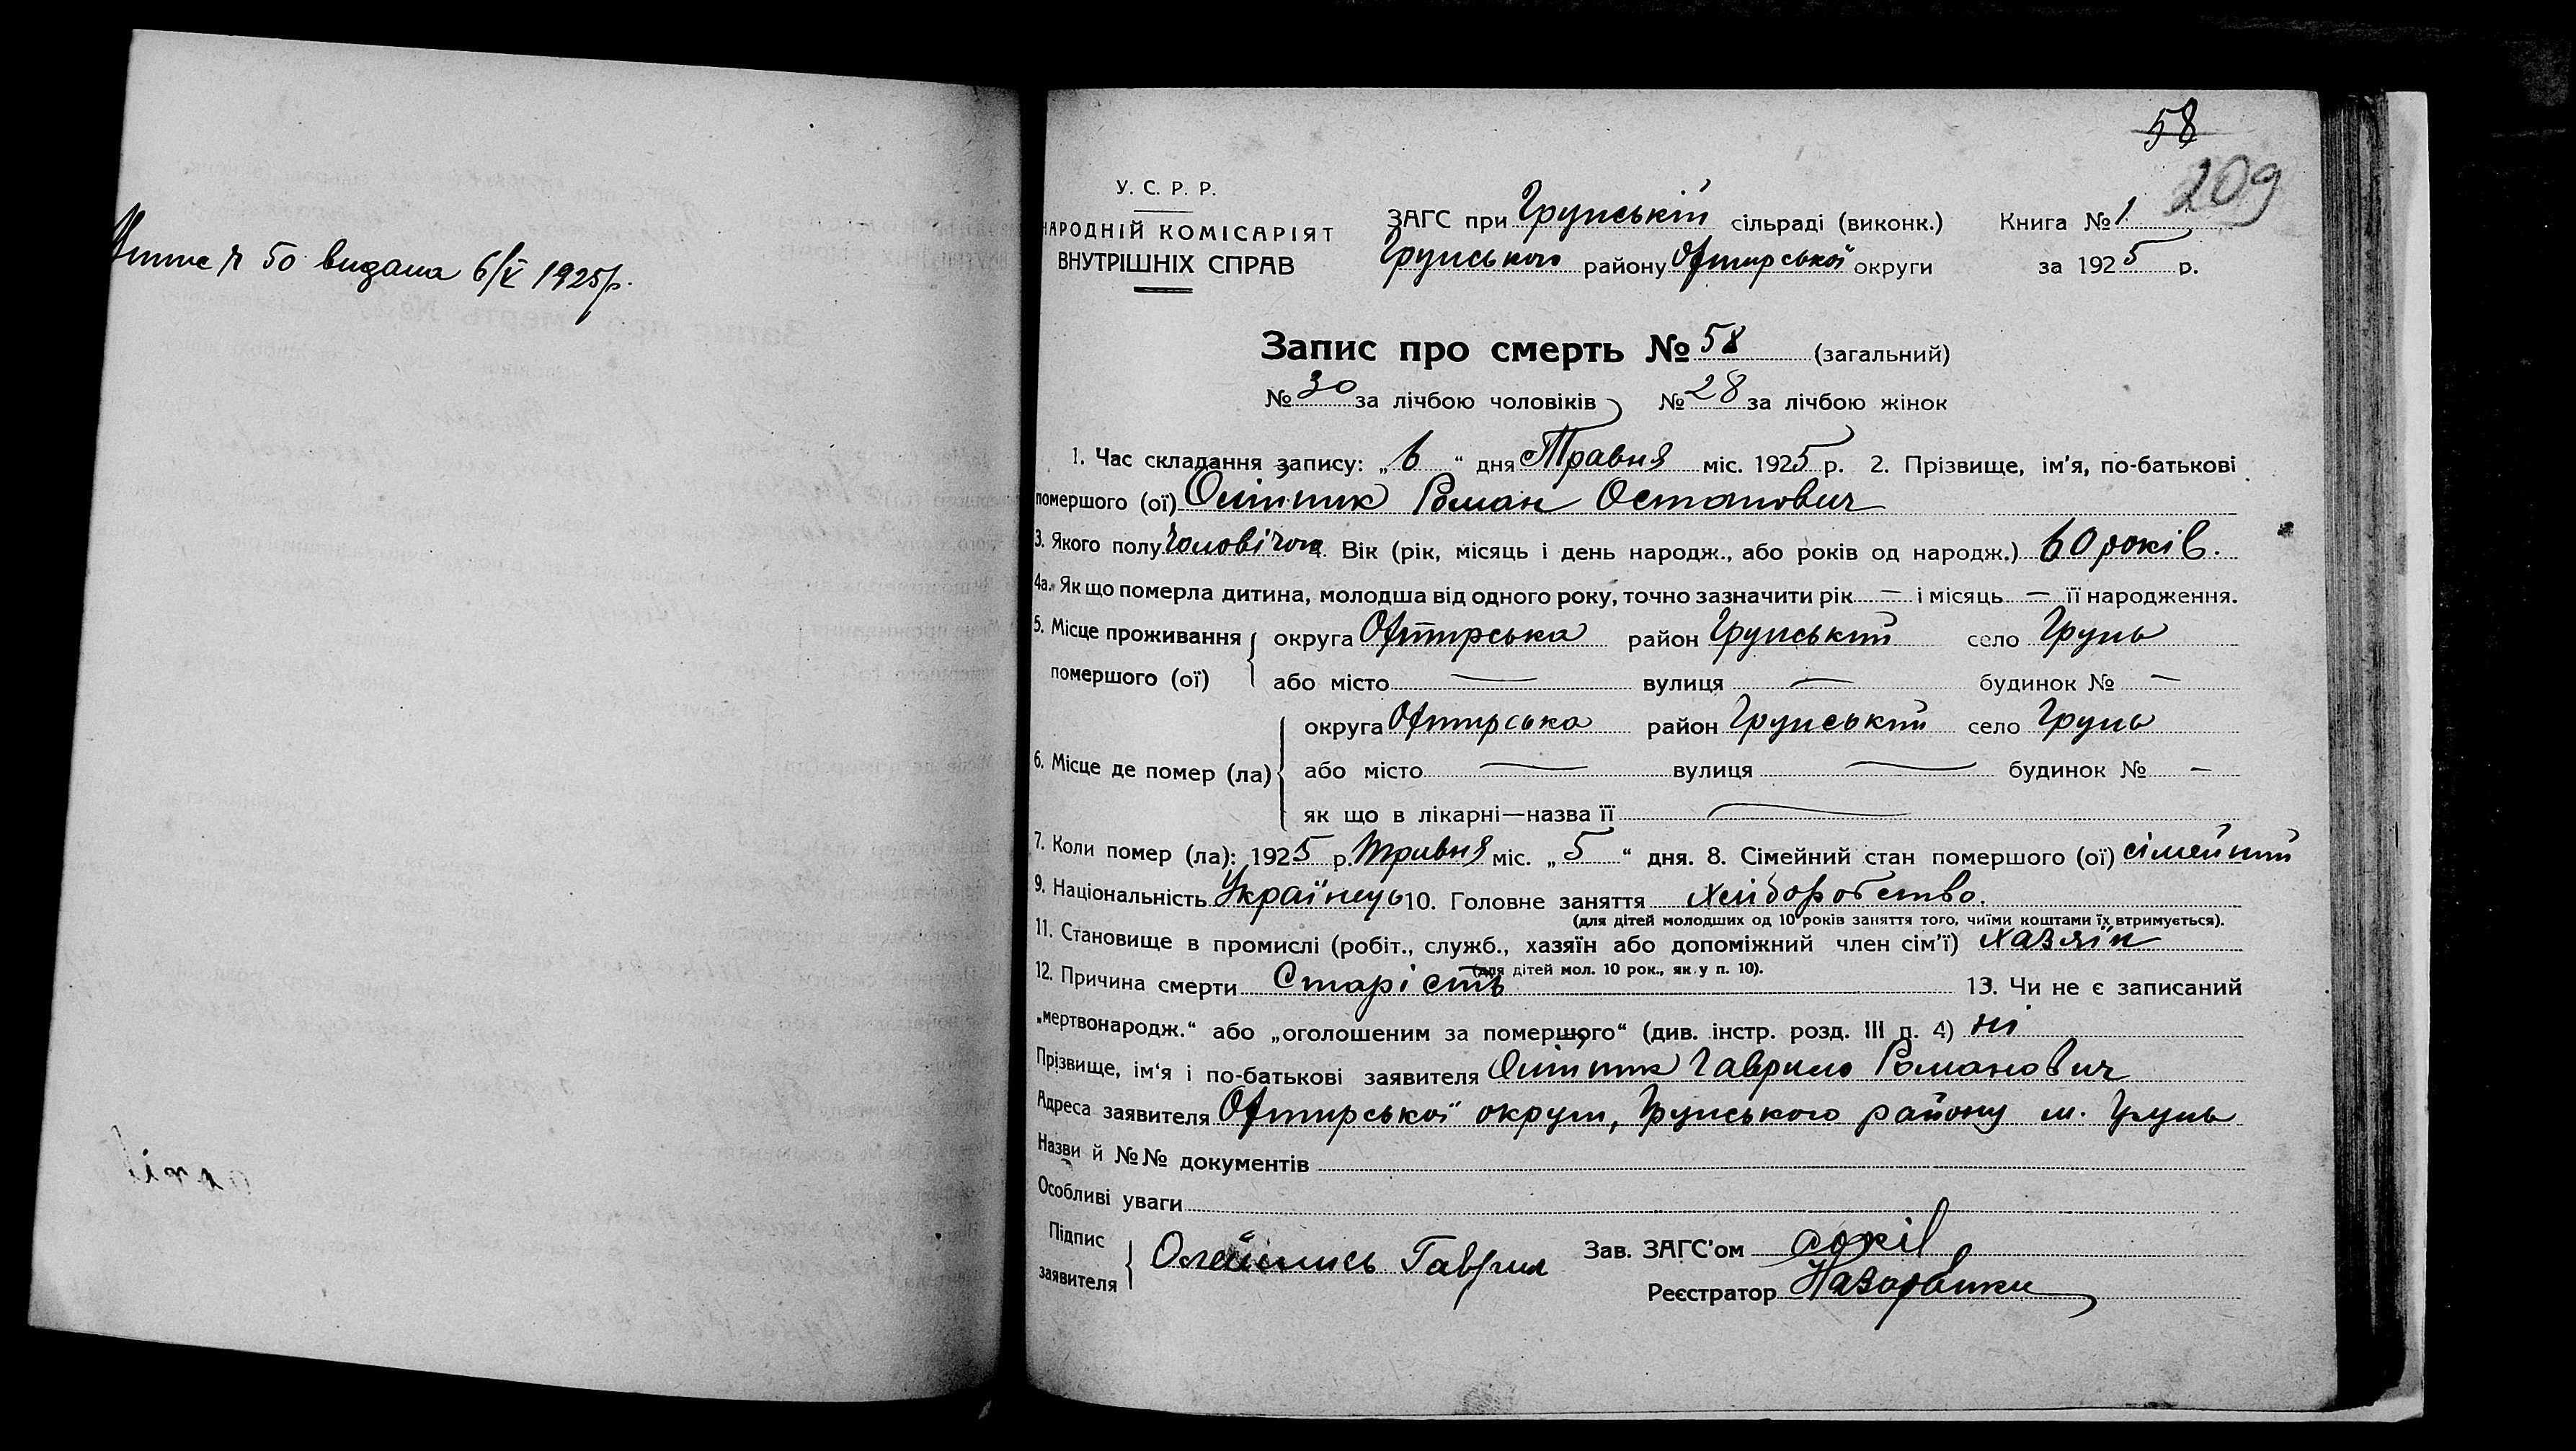 № 50 видана 6/V 1925 р.
58
209
У. С. Р. Р.
НАРОДНІЙ КОМІСАРІЯТ
ВНУТРІШНІХ СПРАВ
ЗАГС при Грунській сільраді (виконк.) Книга № 1
Грунського району Охтирської округи за 1925 р.
Запис про смерть № 58 (загальний)
№ 30 за лічбою чоловіків № 28 за лічбою жінок
1. Час складання запису: „6“ дня Травня міс. 1925 р. 2. Прізвище, ім’я, по-батькові
помершого (ої) Роман Остапович
3. Якого полу чоловічого 4. Вік (рік, місяць і день народж., або років од народж.) 60 років.
4а. Як що померла дитина, молодша від одного року, точно зазначити рік — і місяць — її народження.
5. Місце проживання округа Охтирська район Грунський село Грунь
помершого (ої) або місто — вулиця — будинок № —
округа Охтирська район Грунський село Грунь
6. Місце де помер (ла) або місто — вулиця — будинок № —
як що в лікарні—назва її —
7. Коли помер (ла): 1925 р. травня міс. „5“ дня. 8. Сімейний стан помершого (ої) сімейний
9. Національність Українець 10. Головне заняття хліборобство.
(для дітей молодших од 10 років заняття того, чиїми коштами їх втримується).
11. Становище в промислі (робіт., служб., хазяїн або допоміжний член сім’ї) хазяїн
(для дітей мол. 10 рок., як у п. 10).
12. Причина смерти Старість 13. Чи не є записаний
„мертвонародж.“ або „оголошеним за помершого“ (див. інстр. розд. III п. 4) ні
Прізвище, ім‘я і по-батькові заявителя Гаврило Романович
Адреса заявителя Охтирської округи, Грунського району м. Грунь
Назви й №№ документів
Особливі уваги
Підпис
заявителя Гаврил
Зав. ЗАГС’ом
Реєстратор